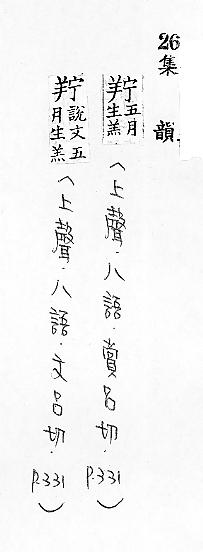 26集韻
羜五月生羔(上聲.八語.賞呂切.P.331)
羜說文五月生羔(上聲.八語.文呂切.P.331)